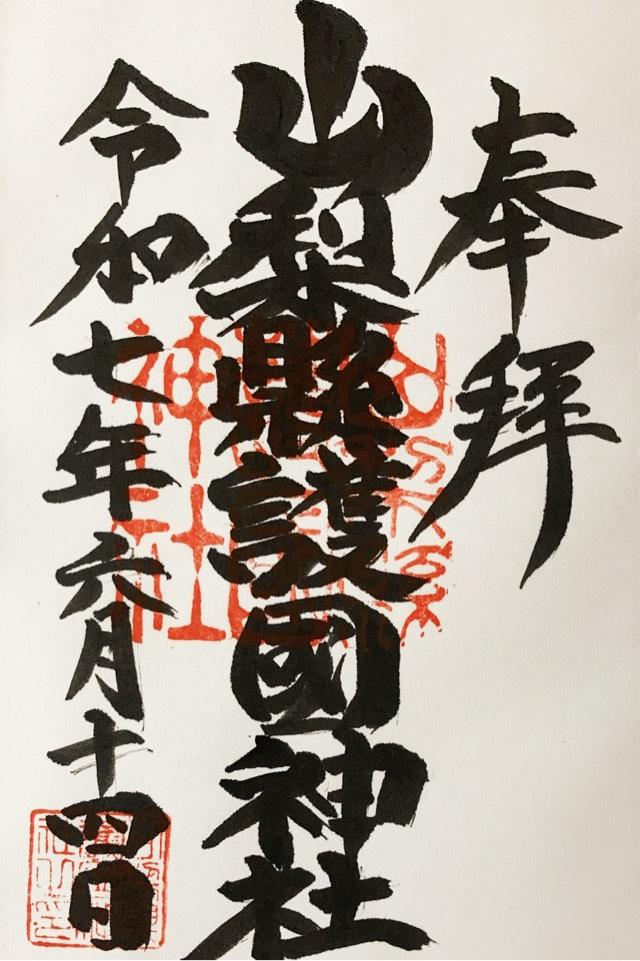 奉拝
山梨縣護國神社
令和七年六月十四日